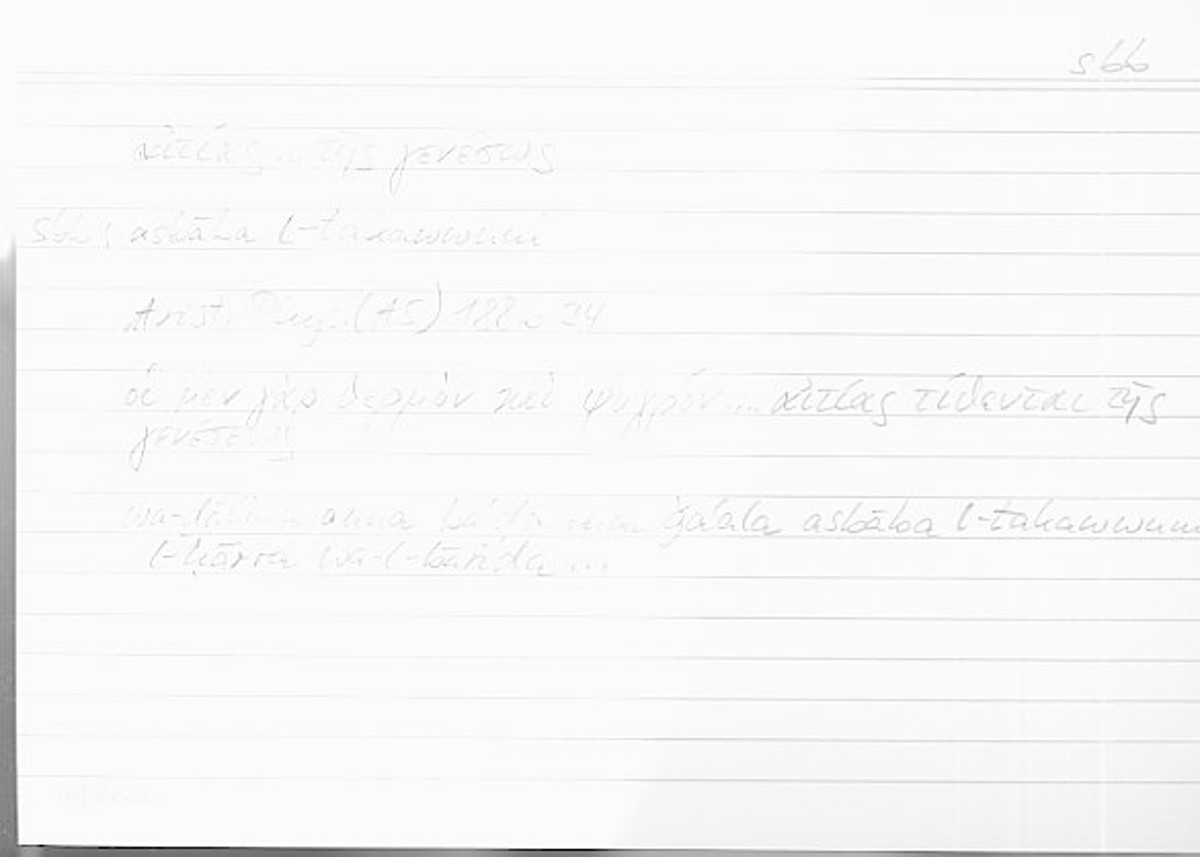 sbb
αἰτίας ... τῆς γενέσεως
sbb: asbāba l-takawwuni
Arist. Phys. (AS) 188b34
οἱ μὲν γὰρ θερμὸν καὶ ψυχρόν ... αἰτίας τίθενται τῆς
γενέσεως
wa-ḏālika anna baʿḍahum ǧaʿala asbāba l-takawwuni
l-ḥārra wa-l-bārida ...